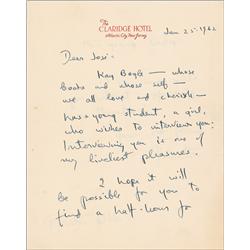 The
CLARIDGE HOTEL
Atlantic City, New Jersey
Jan 25 · 1962
Dear José:
Kay Boyle — whose
books and whose self —
we all love and cherish —
has a young student, a girl,
who wishes to interview you.
Interviewing you is one of
my liveliest pleasures.
I hope it will
be possible for you to
find a half-hour for